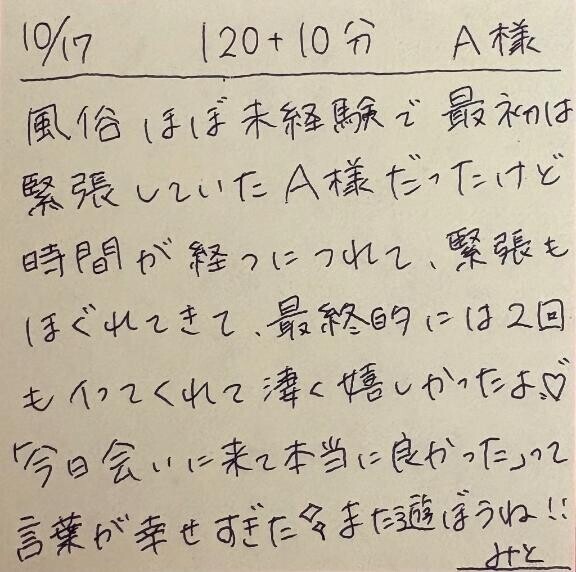 10/17 120+10分 A様
風俗ほぼ未経験で最初は
緊張していたA様だったけど
時間が経つにつれて、緊張も
ほぐれてきて、最終的には2回
もイってくれて凄く嬉しかったよ♡
「今日会いに来て本当に良かった」って
言葉が幸せすぎた✧また遊ぼうね!!
みと